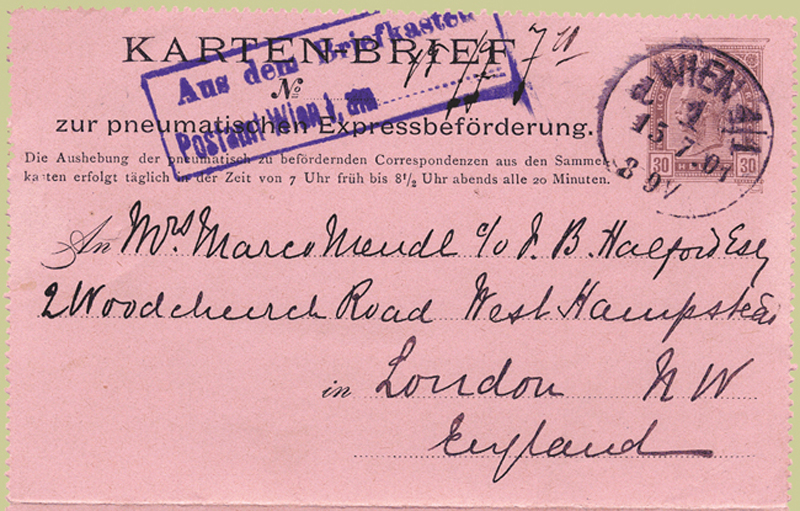 KARTEN-BRIEF
Aus dem Briefkasten
Postamt Wien 1, am
No
zur pneumatischen Expressbeförderung.
WIEN 1/1
15 7 01
30 30
Die Aushebung der pneumatisch zu befördernden Correspondenzen aus den Sammel-
kasten erfolgt täglich in der Zeit von 7 Uhr früh bis 8½ Uhr abends alle 20 Minuten.
An Mrs Marco Mendl c/o J. B. Halford Esq
2 Woodchurch Road West Hampstead
in London N W
England